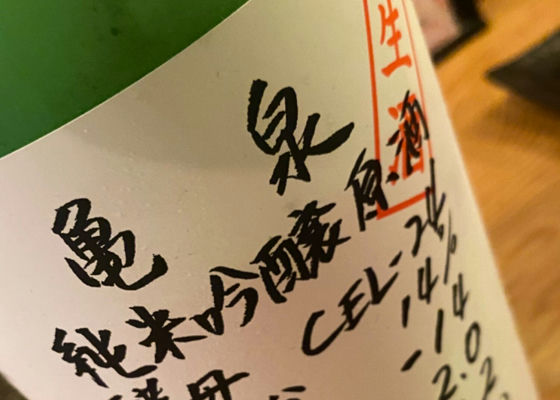 生酒
亀泉
純米吟醸原酒
CEL-24
14%
-14
2.0